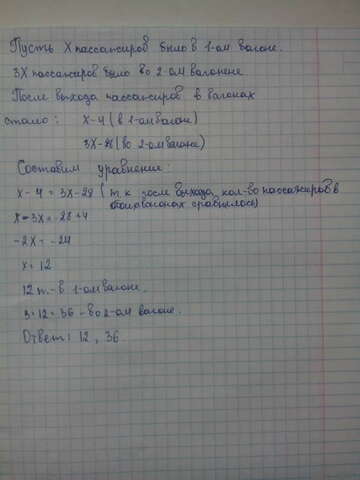 Пусть X пассажиров было в 1-ом вагоне.
3X пассажиров было во 2-ом вагоне
После выхода пассажиров в вагонах
стало: X-4 (в 1-ом вагоне)
3X-28 (во 2-ом вагоне)
Составим уравнение:
x - 4 = 3X - 28 (т.к после выхода кол-во пассажиров в
обоих вагонах сравнялось)
x - 3x = 28 + 4
-2X = -24
x = 12
12 п. - в 1-ом вагоне.
3·12 = 36 - во 2-ом вагоне.
Ответ: 12, 36